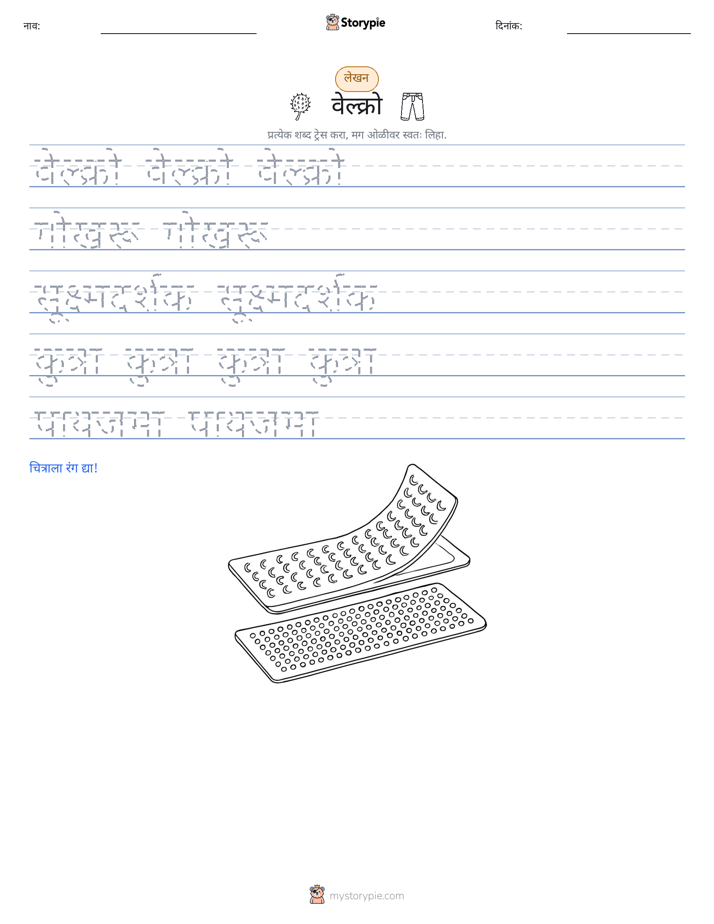 नाव:
Storypie
दिनांक:
लेखन
वेल्क्रो
प्रत्येक शब्द ट्रेस करा, मग ओळीवर स्वतः लिहा.
वेल्क्रो वेल्क्रो वेल्क्रो
गोखरू गोखरू
सूक्ष्मदर्शक सूक्ष्मदर्शक
कुत्रा कुत्रा कुत्रा कुत्रा
पायजमा पायजमा
चित्राला रंग द्या!
mystorypie.com